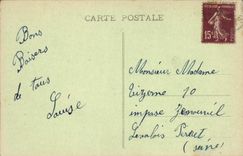 CARTE POSTALE
15c
Bons
Baisers
de tous
Louise
Monsieur Madame
10
impasse
Levallois Perret
(Seine)